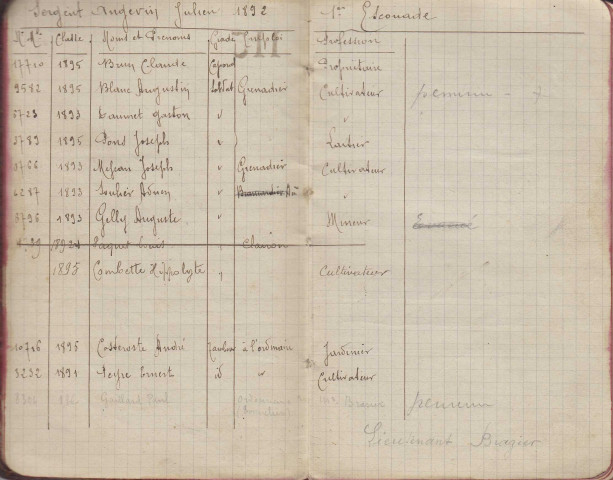 Sergent Angevin Julien 1892 1ère Escouade
Nº Mle Classe Noms et Prénoms Grade Emploi Profession
17720 1895 Brun Claude Caporal Propriétaire
9582 1895 Blanc Augustin Soldat Grenadier Cultivateur
3723 1893 Gaston " "
3789 1895 Pons Joseph " Laitier
3766 1893 Joseph " Grenadier Cultivateur
6217 1893 Soulier " "
3796 1893 Gelly Auguste " Mineur
99 Paquet Louis " Clairon
1895 Combette Hippolyte " Cultivateur
10716 1895 André à l'ordinaire Jardinier
3232 1891 Peyre Ernest d " Cultivateur
Gaillard Paul
Lieutenant Brazier